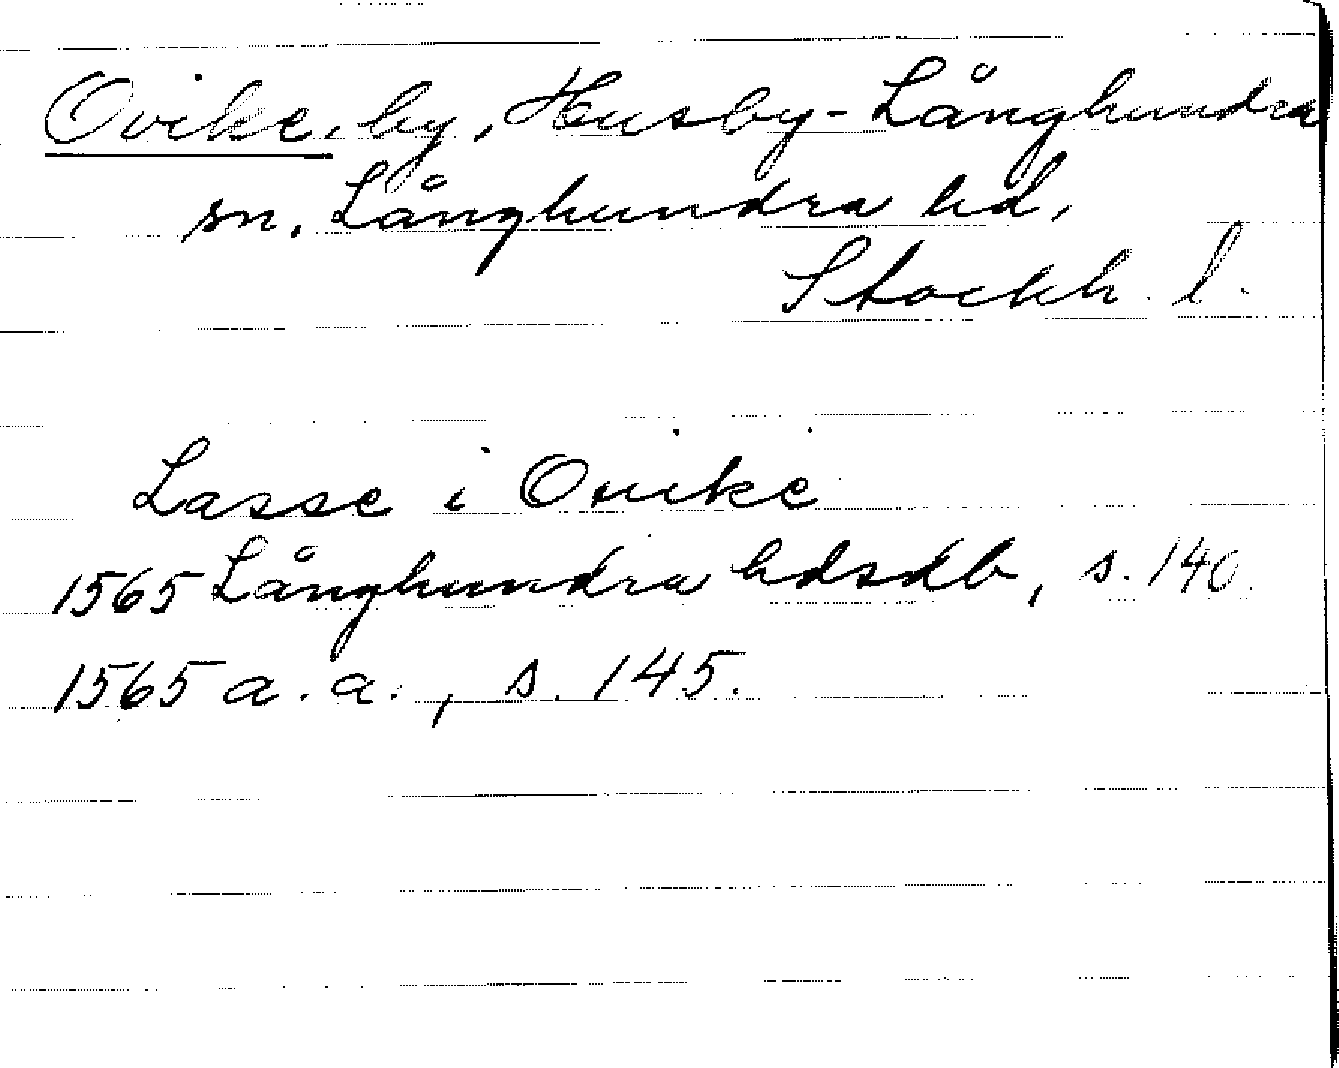 Ovike, by, Husby-Långhundra
sn. Långhundra hd,
Stockh. l.
Lasse i Ouike
1565 Långhundra hdsdb, s. 140.
1565 a. a., s. 145.